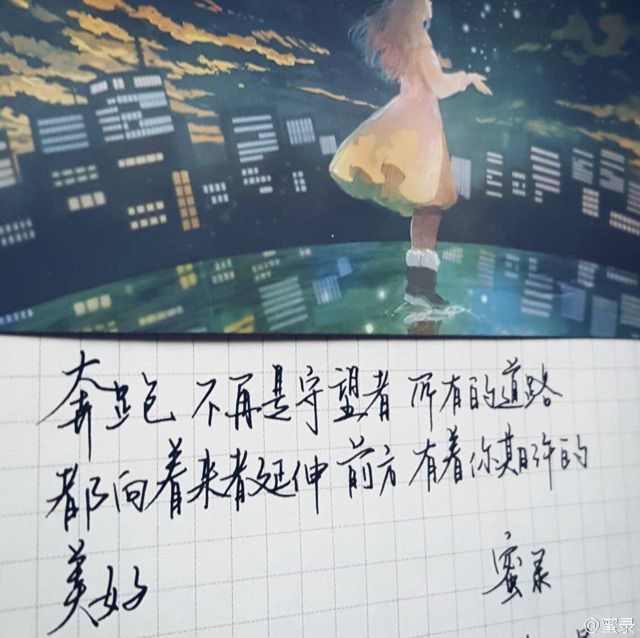 奔跑 不再是守望者 所有的道路
都向着来者延伸 前方 有着你期许的
美好
蜜录
@蜜录